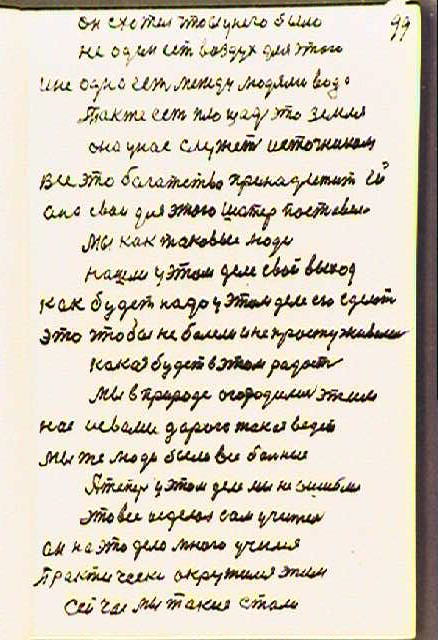 99
он схотил чтобы унего было
не один ест воздух для этого
ине одно ест между людями вода
Также ест площад это земля
она унас служет источником
Все это багатство принадлежит ей
она свои для этого шатер поставела
Мы как таковые люди
нашли у этом деле свой выход
как будет надо у этом деле его сделат
это чтобы не болели ине простужывалис
какая будет в этом радость
мы в природе огородилис этим
нас свами дорога такая ведет
мы же люди были все больные
Атепер у этом деле мы не ошиблис
это все сделал сам учител
он на это дело много учился
практически окружился этим
сейчас мы такие стали